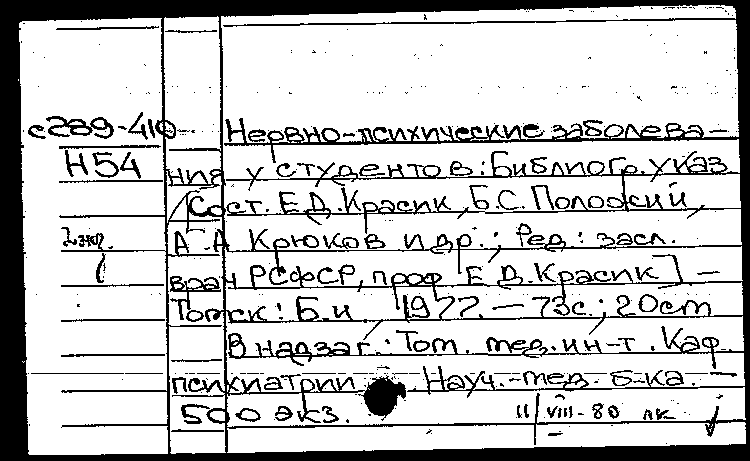 с289-410 Нервно-психические заболева-
Н54 ния у студентов: Библиогр. указ.
/Сост. Е.Д. Красик, Б.С. Положий,
2 экз. А.А. Крюков и др.; Ред.: засл.
врач РСФСР, проф Е.Д. Красик] –
Томск: Б.и. 1977. – 73с.; 20см
В надзаг.: Том. мед. ин-т. Каф.
психиатрии. Науч.-мед. б-ка. –
500 экз. 11/VIII-80 лк